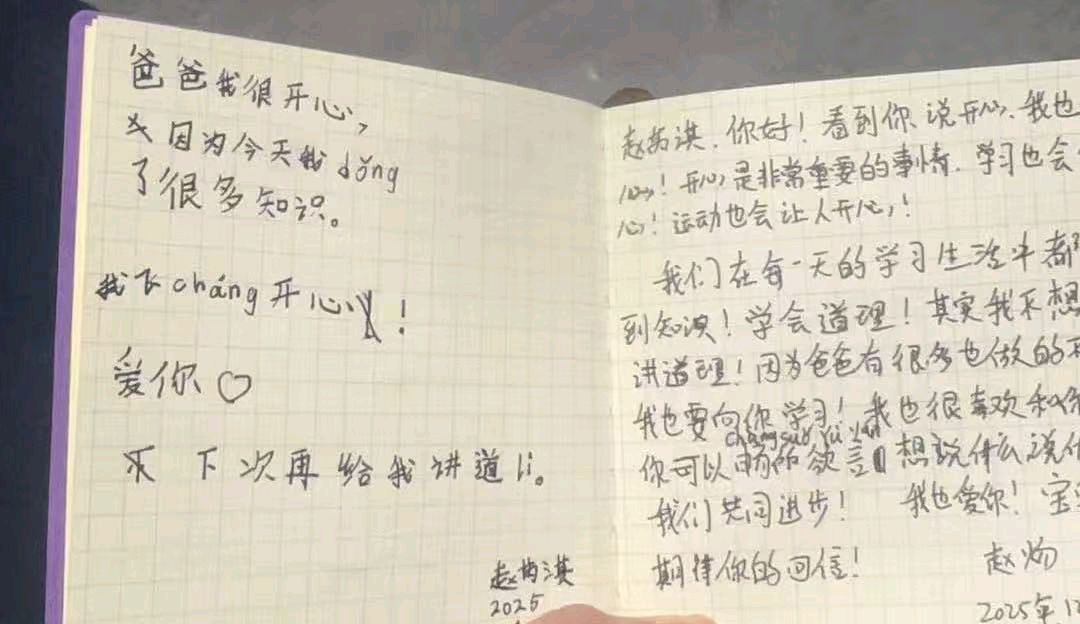 爸爸我很开心,
因为今天我dǒng
了很多知识。
我飞cháng开心!
爱你♡
下次再给我讲道li。
2025
你好!看到你说开心.我也
心!开心是非常重要的事情.学习也会
心!运动也会让人开心!
我们在每一天的学习生活中都
到知识!学会道理!其实我不想
讲道理!因为爸爸有很多也做的不
我也要向你学习!我也很喜欢和你
chang suo yu yan
你可以畅所欲言 想说什么说什
我们共同进步! 我也爱你!宝
期待你的回信!
赵
2025年12